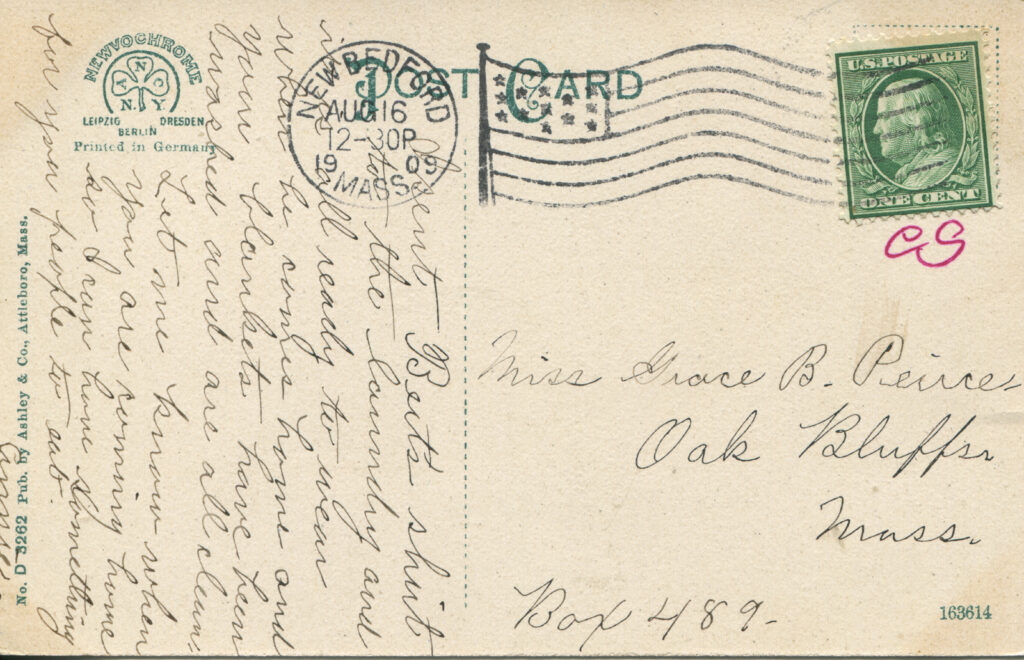 POST CARD
NEWVOCHROME
A N C
N.Y
LEIPZIG DRESDEN
BERLIN
Printed in Germany
NEW BEDFORD
AUG 16
12-30P
19 09
MASS.
U.S. POSTAGE
ONE CENT
CS
Sent Bert's shirt
to the laundry and
is all ready to wear
when he comes home and
your blankets have been
washed and are all clean
Let me know when
you are coming home
so I can have something
for you people to eat.
Miss Grace B. Peirce,
Oak Bluffs,
Mass.
Box 489.
163614
No. D 3262 Pub. by Ashley & Co., Attleboro, Mass.